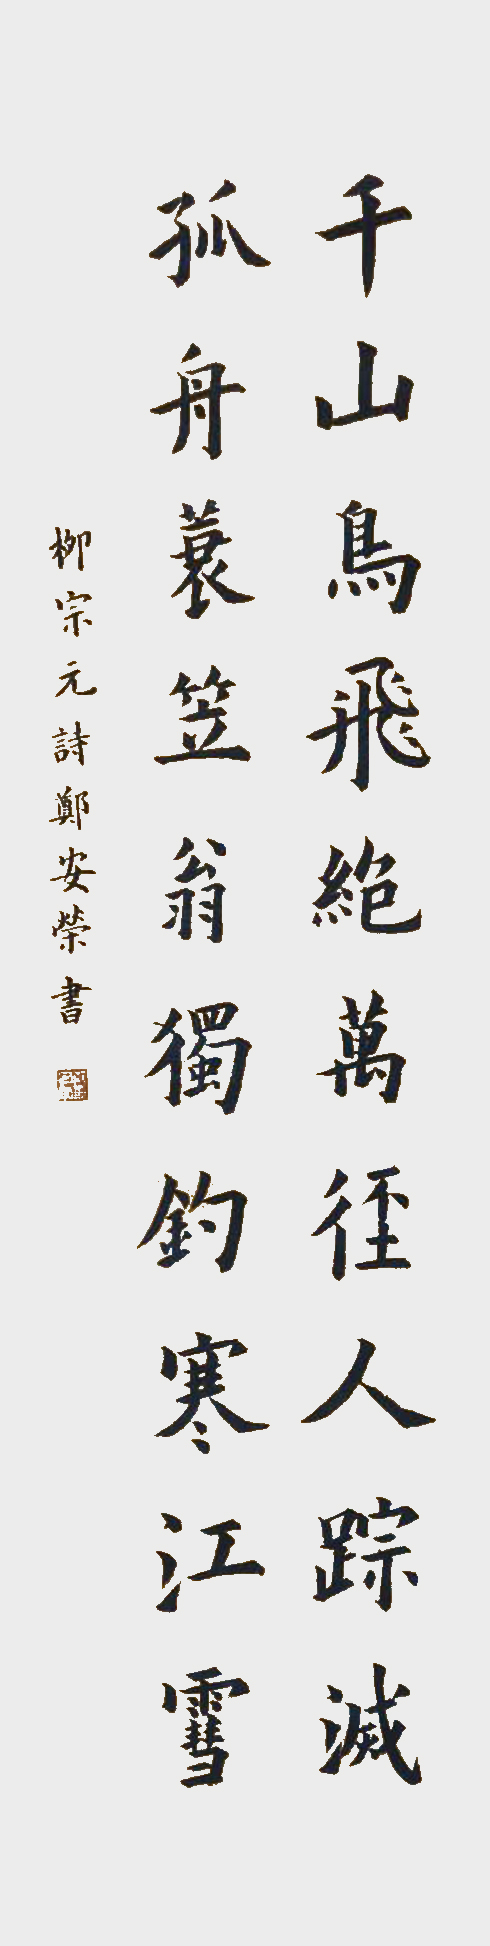 千山鳥飛絶萬徑人踪滅
孤舟蓑笠翁獨釣寒江雪
柳宗元詩鄭安榮書